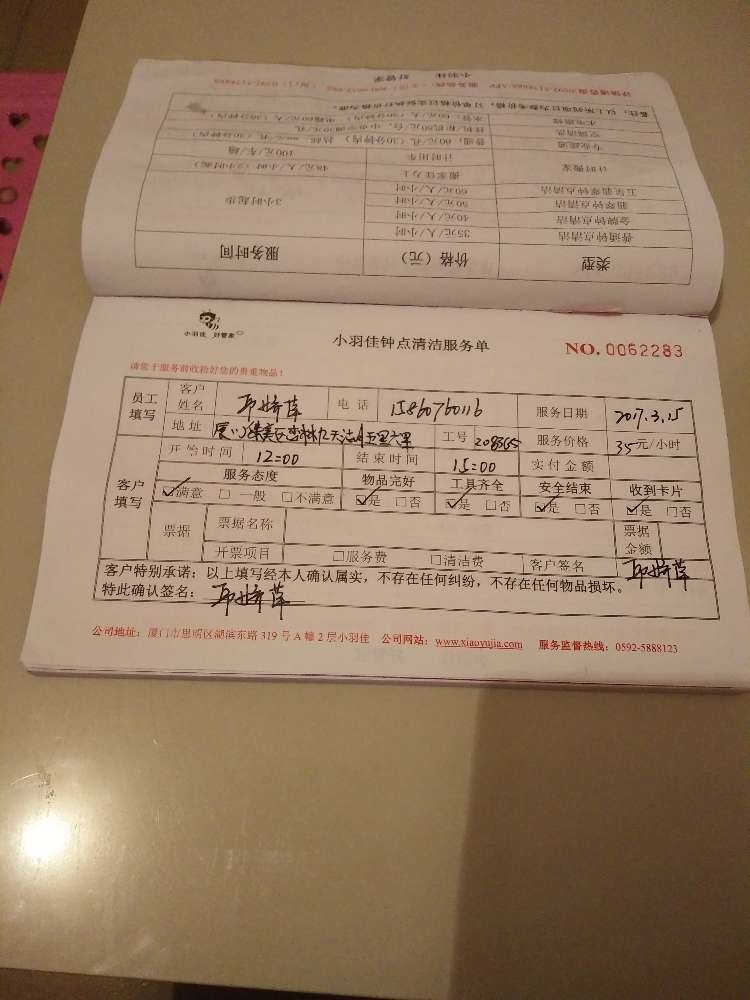 小羽佳 好管家
小羽佳钟点清洁服务单
NO. 0062283
请您于服务前收拾好您的贵重物品！
员工填写 客户姓名 电话 15860760116 服务日期 2017.3.15
地址 工号 208365 服务价格 35元/小时
客户填写 开始时间 12=00 结束时间 15=00 实付金额
服务态度 物品完好 工具齐全 安全结束 收到卡片
☑满意 □一般 □不满意 ☑是 □否 ☑是 □否 ☑是 □否 ☑是 □否
票据 票据名称 票据金额
开票项目 □服务费 □清洁费 客户签名
客户特别承诺：以上填写经本人确认属实，不存在任何纠纷，不存在任何物品损坏。
特此确认签名：
公司地址：厦门市思明区湖滨东路319号A幢2层小羽佳 公司网站：www.xiaoyujia.com 服务监督热线：0592-5888123
类型 价格（元） 服务时间
普通钟点清洁 35元/人/小时 3小时起步
金牌钟点清洁 40元/人/小时
翡翠钟点清洁 50元/人/小时
玉泉翡翠钟点清洁 60元/人/小时
计时搬家 搬家佳力士 48元/人/小时（2小时起）
计时用车 100元/车/趟
专业疏通
空调清洗
水电维修
小羽佳 好管家